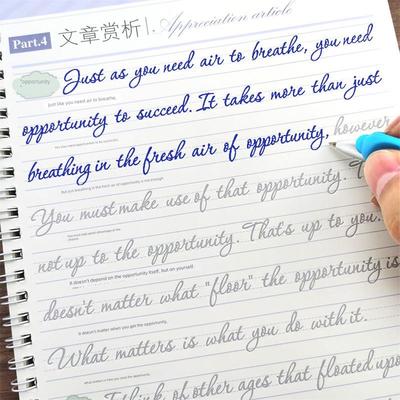 Part.4 文章赏析 Appreciation article
opportunity
Just as you need air to breathe, you need
just like you need air to breathe,
opportunity to succeed. It takes more than just
breathing in the fresh air of opportunity, however
But just breathing in the fresh air of opportunity is not enough.
You must make use of that opportunity. T
not up to the opportunity. That's up to you.
It doesn't depend on the opportunity itself, but on yourself.
doesn't matter what "floor" the opportunity is
It doesn't matter when you get the opportunity,
What matters is what you do with it.
what matters is how you seize the opportunity.
think of other ages that floated upo